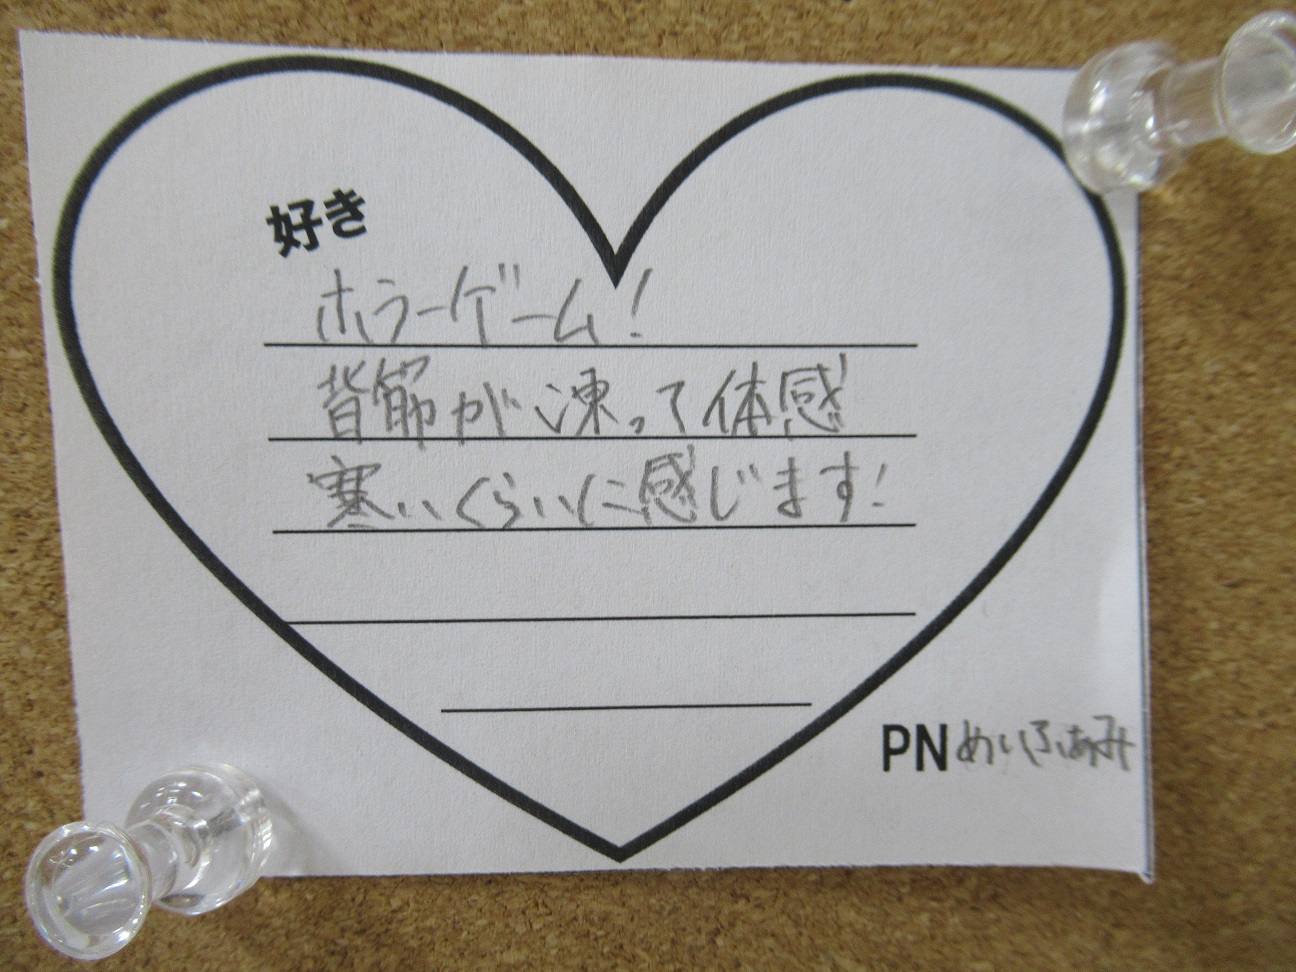 好き
ホラーゲーム!
背筋が凍って体感
寒いくらいに感じます!
PNめいふぁみ